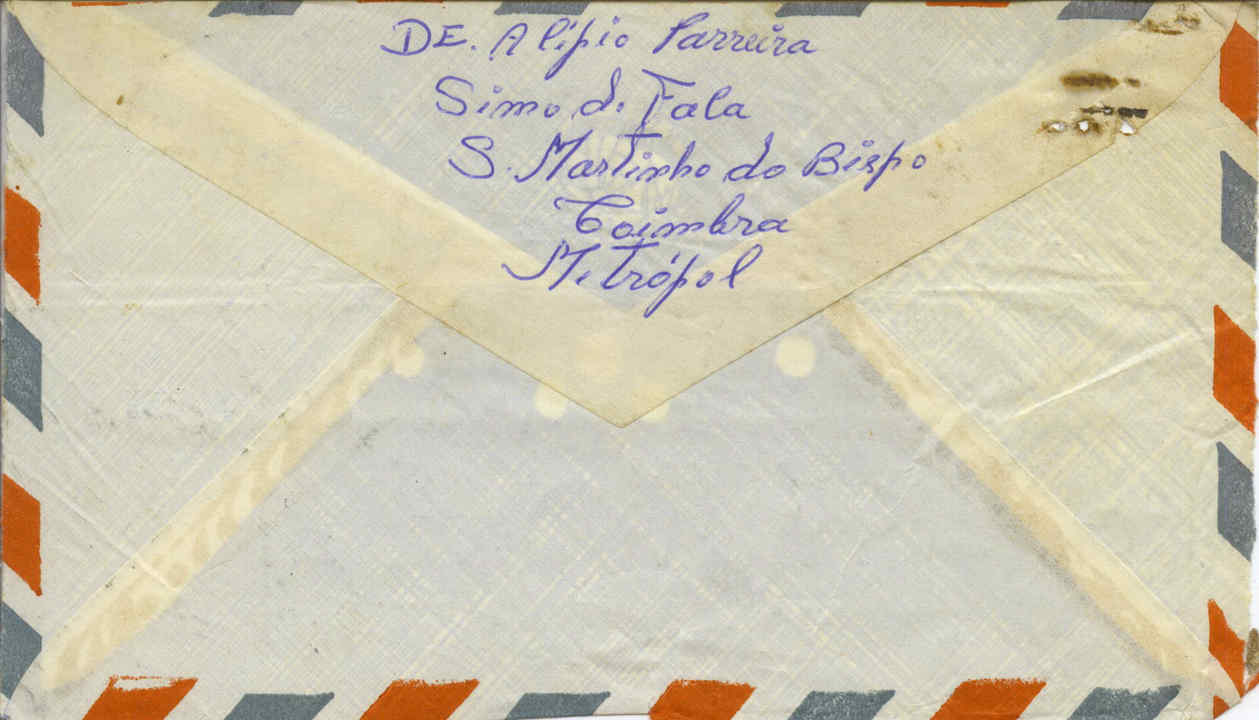 DE. Alípio Parreira
Simo de Fala
S. Martinho do Bispo
Coimbra
Metrópol